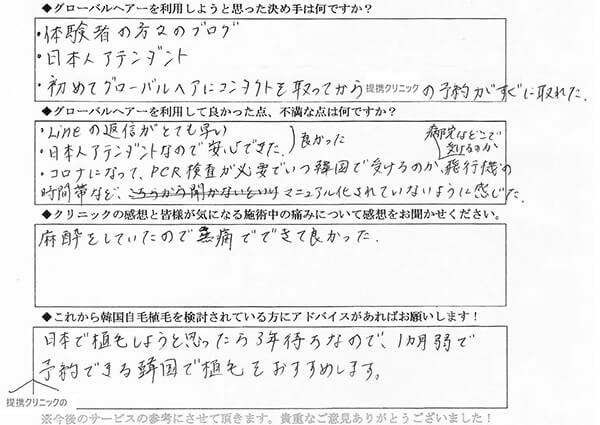 ◆グローバルヘアーを利用しようと思った決め手は何ですか？
・体験者の方々のブログ
・日本人アテンダント
・初めてグローバルヘアにコンタクトを取ってから提携クリニックの予約がすぐに取れた.
◆グローバルヘアーを利用して良かった点、不満な点は何ですか？
・Lineの返信がとても早い
・日本人アテンダントなので安心できた.
良かった
病院などどこで
受けるのか
・コロナになって、PCR検査が必要でいつ韓国で受けるのか、飛行機の
時間帯など、こちらから聞かないといけマニュアル化されていないように感じた.
◆クリニックの感想と皆様が気になる施術中の痛みについて感想をお聞かせください。
麻酔をしていたので無痛でできて良かった.
◆これから韓国自毛植毛を検討されている方にアドバイスがあればお願いします！
日本で植毛しようと思ったら3年待ちなので、1カ月弱で
予約できる韓国で植毛をおすすめします。
提携クリニックの
※今後のサービスの参考にさせて頂きます。貴重なご意見ありがとうございました！